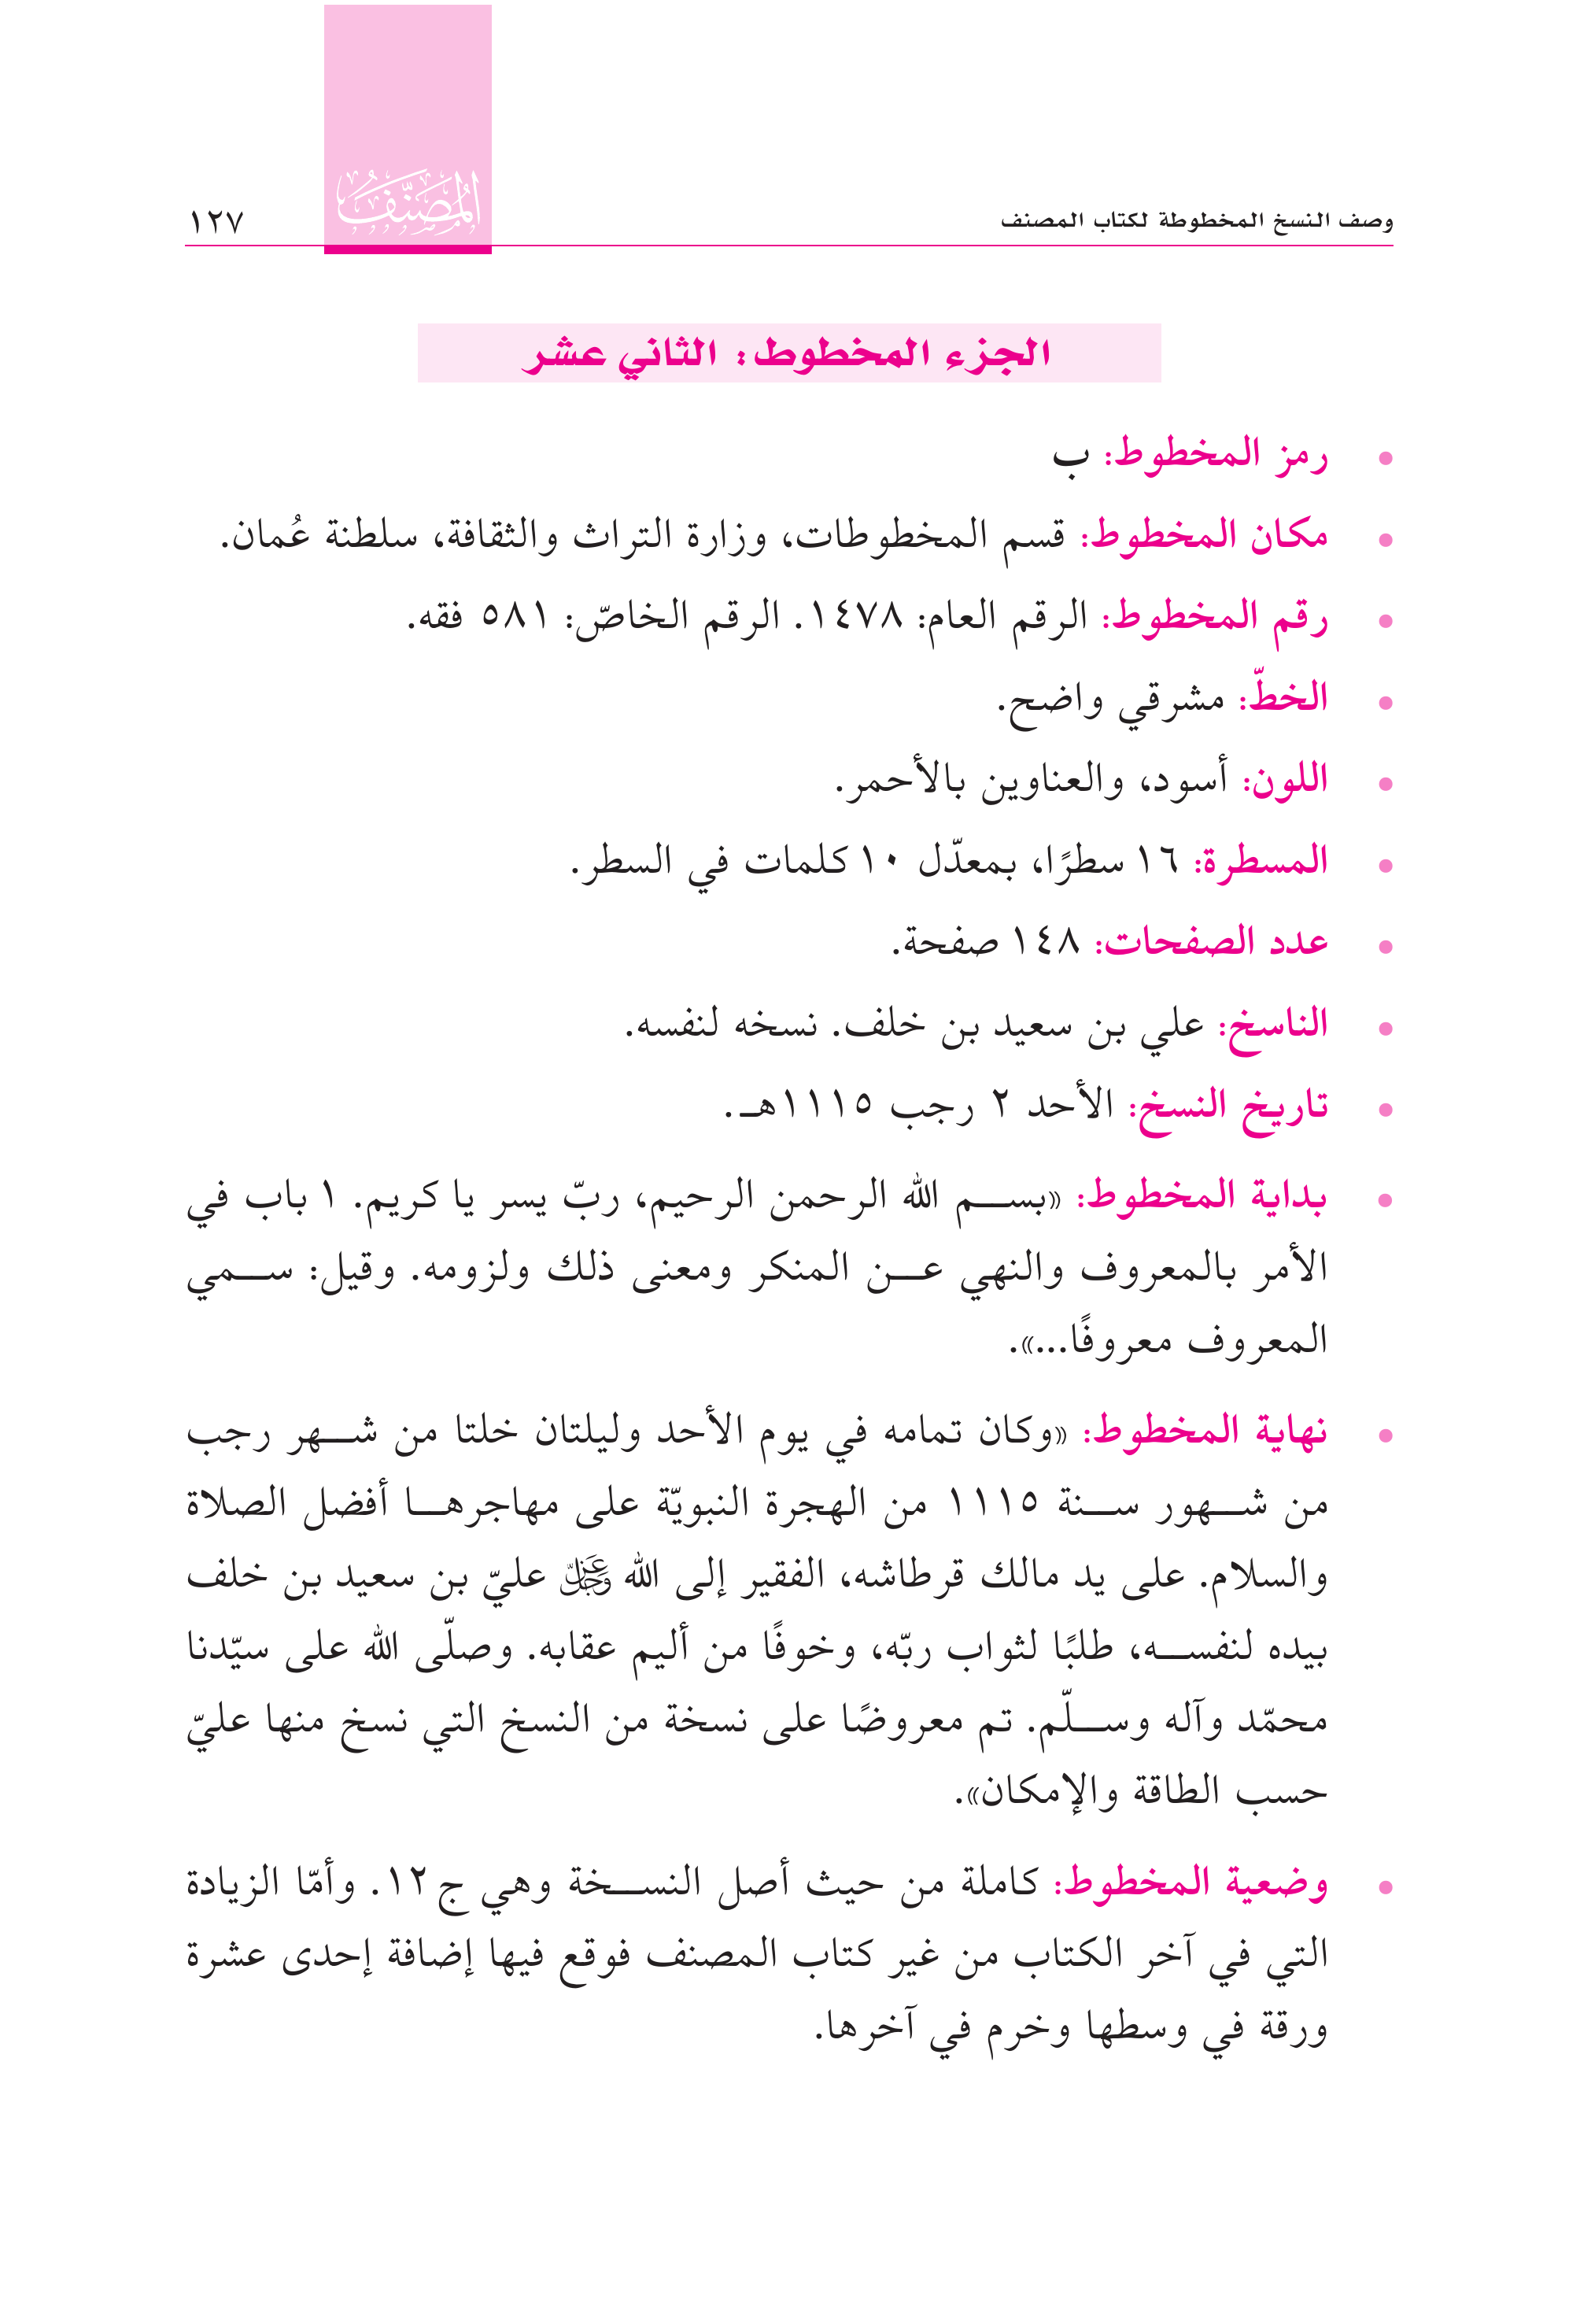 وصف النسخ المخطوطة لكتاب المصنف
المصنف
١٢٧
الجزء المخطوط: الثاني عشر
• رمز المخطوط: ب
• مكان المخطوط: قسم المخطوطات، وزارة التراث والثقافة، سلطنة عُمان.
• رقم المخطوط: الرقم العام: ١٤٧٨. الرقم الخاصّ: ٥٨١ فقه.
• الخطّ: مشرقي واضح.
• اللون: أسود، والعناوين بالأحمر.
• المسطرة: ١٦ سطرًا، بمعدّل ١٠ كلمات في السطر.
• عدد الصفحات: ١٤٨ صفحة.
• الناسخ: علي بن سعيد بن خلف. نسخه لنفسه.
• تاريخ النسخ: الأحد ٢ رجب ١١١٥هـ.
• بداية المخطوط: «بسم الله الرحمن الرحيم، ربّ يسر يا كريم. ١ باب في
الأمر بالمعروف والنهي عن المنكر ومعنى ذلك ولزومه. وقيل: سمي
المعروف معروفًا...».
• نهاية المخطوط: «وكان تمامه في يوم الأحد وليلتان خلتا من شهر رجب
من شهور سنة ١١١٥ من الهجرة النبويّة على مهاجرها أفضل الصلاة
والسلام. على يد مالك قرطاشه، الفقير إلى الله عزّ وجلّ عليّ بن سعيد بن خلف
بيده لنفسه، طلبًا لثواب ربّه، وخوفًا من أليم عقابه. وصلّى الله على سيّدنا
محمّد وآله وسلّم. تم معروضًا على نسخة من النسخ التي نسخ منها عليّ
حسب الطاقة والإمكان».
• وضعية المخطوط: كاملة من حيث أصل النسخة وهي ج١٢. وأمّا الزيادة
التي في آخر الكتاب من غير كتاب المصنف فوقع فيها إضافة إحدى عشرة
ورقة في وسطها وخرم في آخرها.